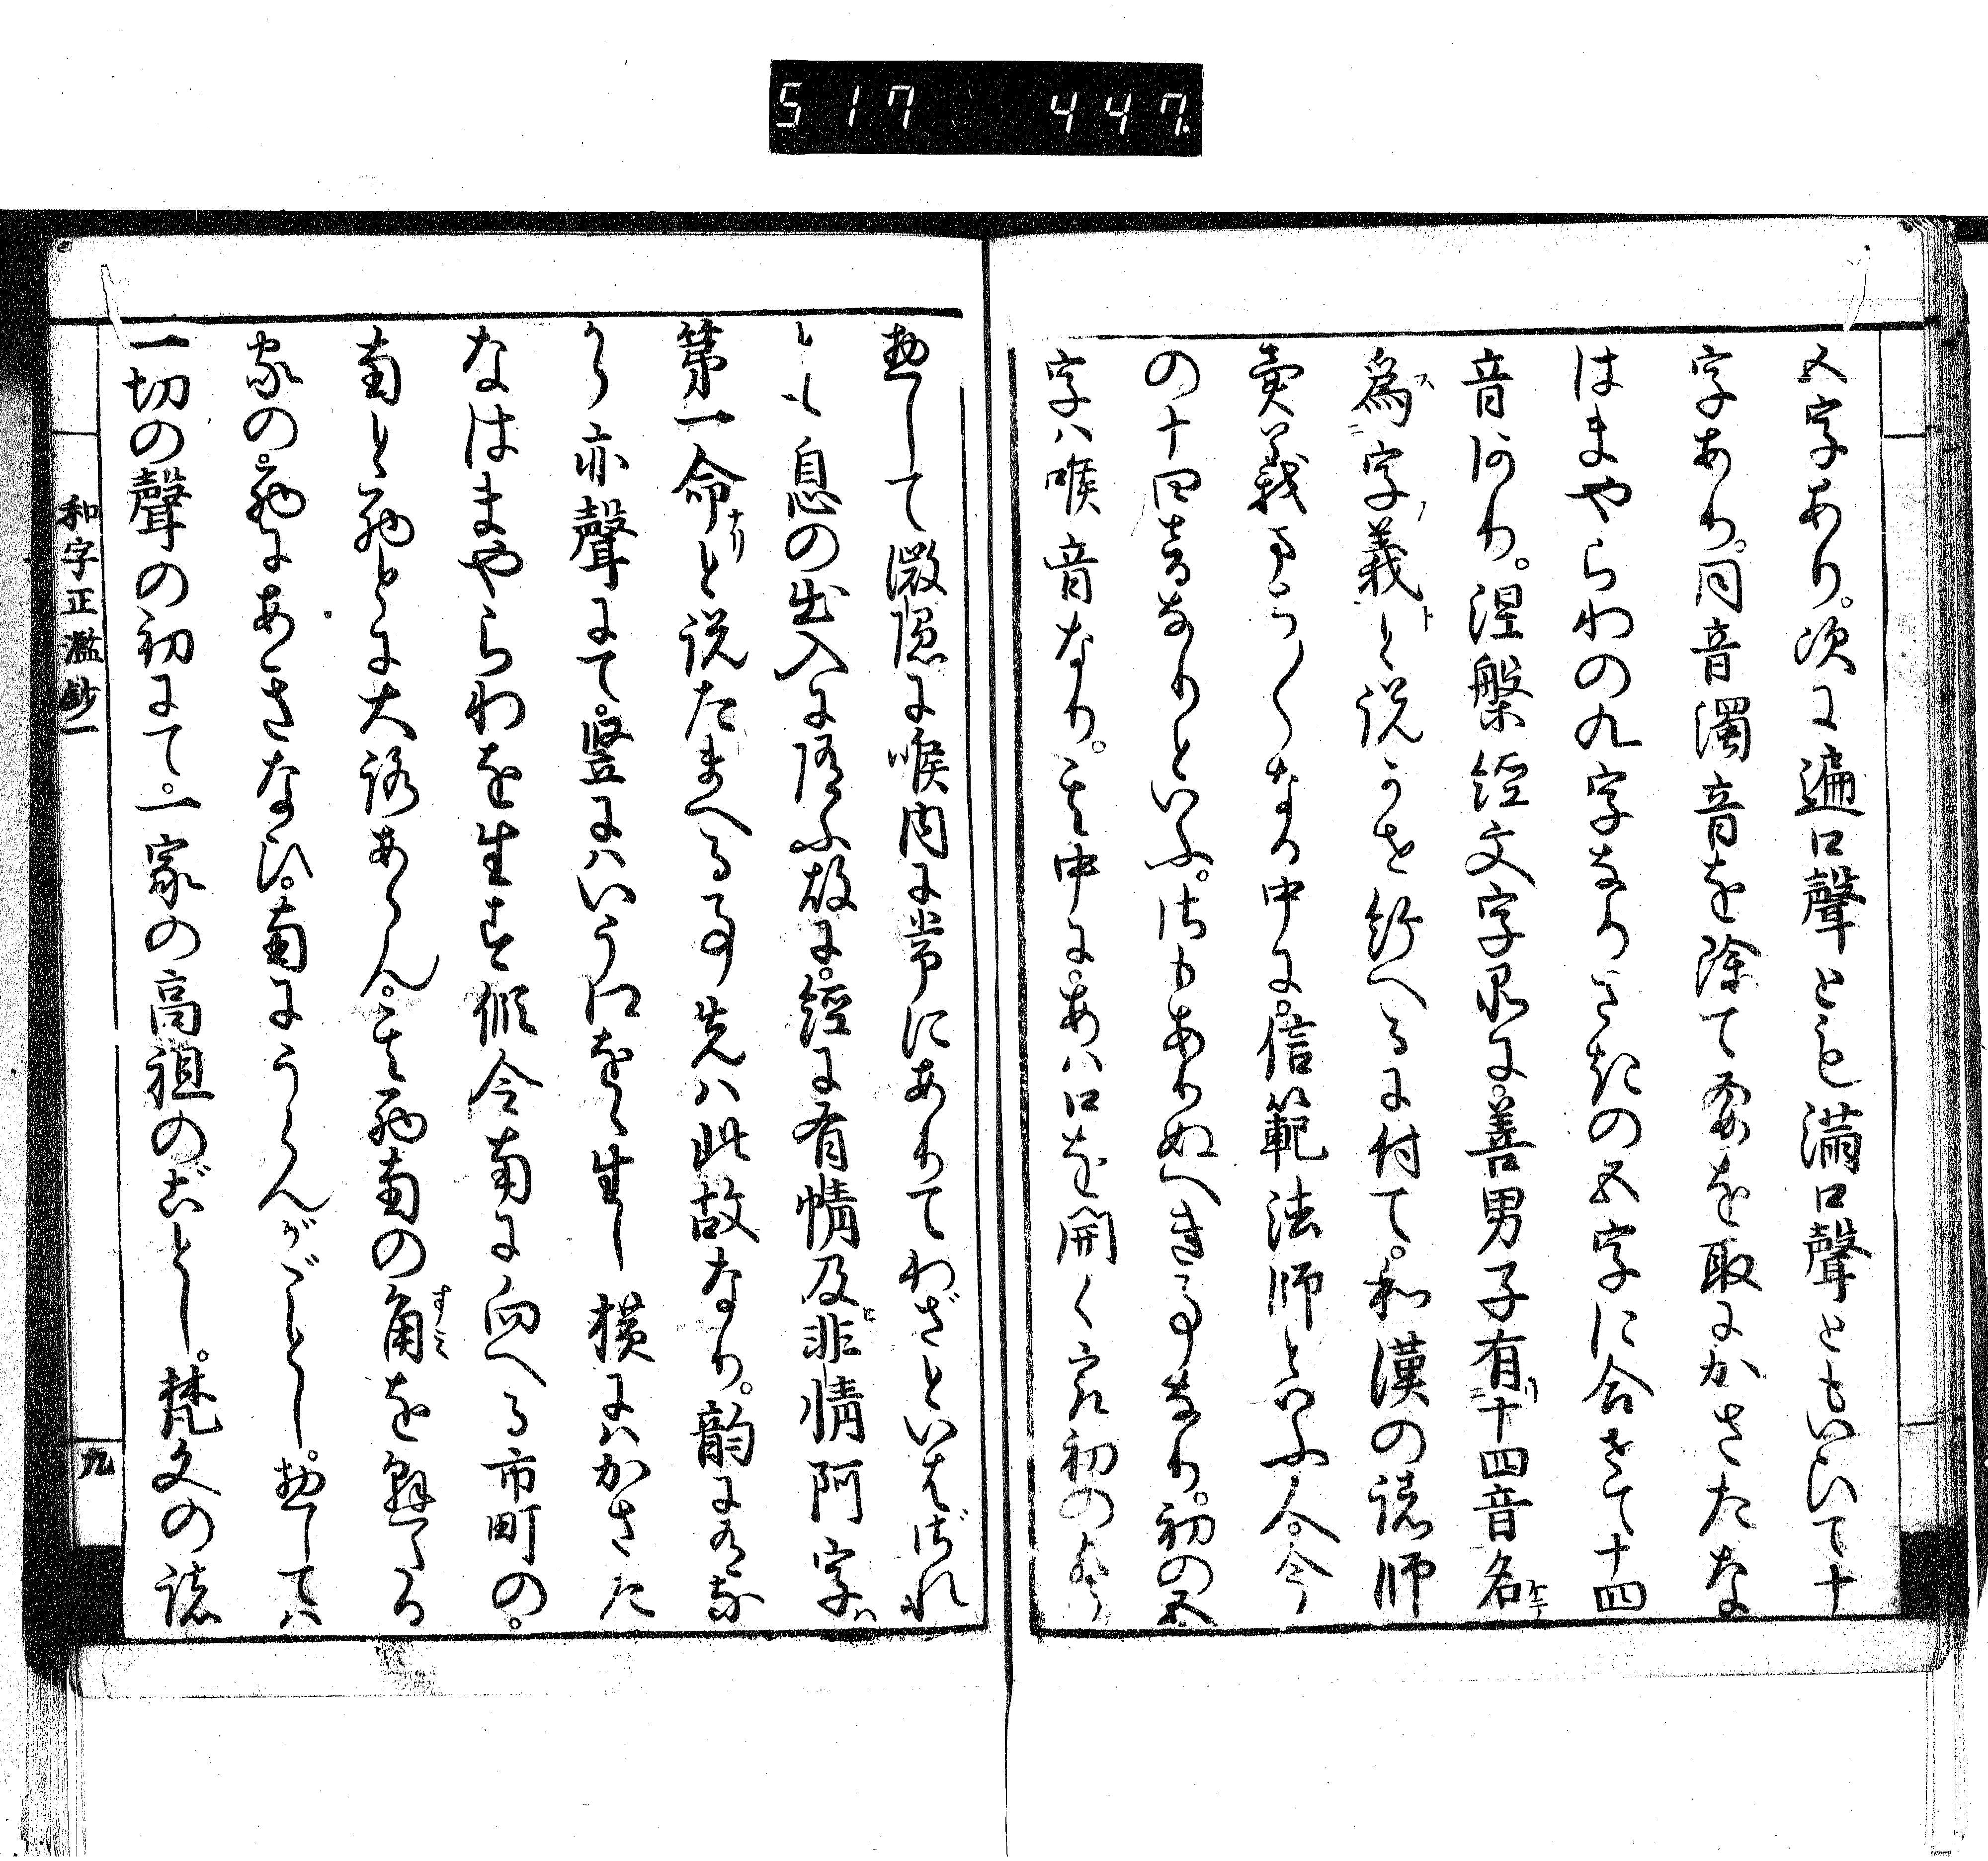 517 447.
五字あり。次に遍口聲とも滿口聲ともいひて十
字あり。同音濁音を除て要を取にかさたな
はまやらわの九字なりさきの五字に合せて十四
音なり。涅槃經文字品に。善男子有十四音名
爲字義と説せ給へるに付て。和漢の諸師
異義まち〱なる中に。信範法師といふ人。今
の十四音なりといふ。さもありぬへき事なり。初の五
字ハ喉音なり。其中に。あハ口を開く最初の聲
惣して微隱に喉内に常にありてわざといはざれ
とも息の出入に隨ふ故に。經に有情及非情阿字
第一命と説たまへる事先ハ此故なり。韵に有な
から亦聲にて。竪にハいうゑをを生し横にハかさた
なはまやらわを生す假令南に向へる市町の。
南と西とに大路あらん。其西南の角を兼たる
家の。西にあきなひ。南にうらんがごとし。惣してハ
一切の聲の初にて。一家の高祖のごとし。梵文の諸
和字正濫鈔一
九